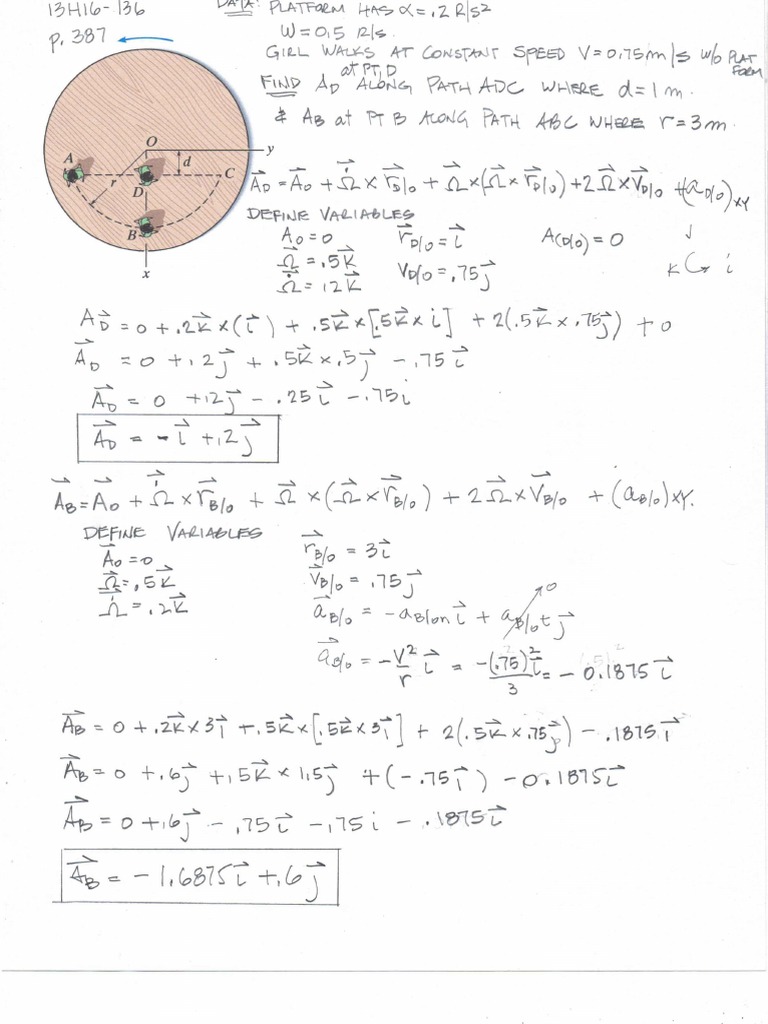 13H16-136
p. 387
DATA: PLATFORM HAS α=.2 R/s²
W=0.5 R/s.
GIRL WALKS AT CONSTANT SPEED V=0.75m/s W/o PLAT FORM
at PT, D
FIND A_D ALONG PATH ADC WHERE d=1m.
& A_B at PT B ALONG PATH ABC WHERE r=3m.
O
y
A
d
C
r
D
B
x
A⃗_D = A⃗_O + Ω⃗̇ × r⃗_D/O + Ω⃗ × (Ω⃗ × r⃗_D/O) + 2Ω⃗ × V⃗_D/O + (a_D/O)_XY
DEFINE VARIABLES
A_O = 0
r⃗_D/O = i⃗
A(D/O) = 0
Ω⃗ = .5k⃗
V_D/O = .75j⃗
K i
Ω⃗̇ = .2k⃗
A⃗_D = 0 + .2k⃗ × (i⃗) + .5k⃗ × [.5k⃗ × i] + 2(.5k⃗ × .75j⃗) + 0
A⃗_D = 0 + .2j⃗ + .5k⃗ × .5j⃗ - .75i⃗
A⃗_D = 0 + .2j⃗ - .25i⃗ - .75i
A⃗_D = - i⃗ + .2j⃗
A⃗_B = A⃗_O + Ω⃗̇ × r⃗_B/O + Ω⃗ × (Ω⃗ × r⃗_B/O) + 2Ω⃗ × V⃗_B/O + (a_B/O)_XY.
DEFINE VARIABLES
A⃗_O = 0
r⃗_B/O = 3i⃗
Ω⃗ = .5k⃗
V⃗_B/O = .75j⃗
Ω⃗̇ = .2k⃗
a⃗_B/O = -a_B/On i⃗ + a_B/Ot j⃗ 0
a⃗_B/O = -V²/r i⃗ = -(.75)² i⃗/3 = -0.1875 i⃗
A⃗_B = 0 + .2k⃗ × 3i⃗ + .5k⃗ × [.5k⃗ × 3i⃗] + 2(.5k⃗ × .75j⃗) - .1875i⃗
A⃗_B = 0 + .6j⃗ + .5k⃗ × 1.5j⃗ + (-.75i⃗) - 0.1875i⃗
A⃗_B = 0 + .6j⃗ - .75i⃗ - .75i - .1875i⃗
A⃗_B = -1.6875i⃗ + .6j⃗